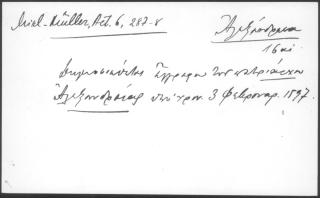 Micl-Müller, Act. 6, 287-8
Ἀλεξάνδρεια
16 αἰ
Δημοσιεύεται ἔγγραφον τοῦ πατριάρχου
Ἀλεξανδρείας ὑπὸ χρον. 3 Φεβρουαρ. 1597.